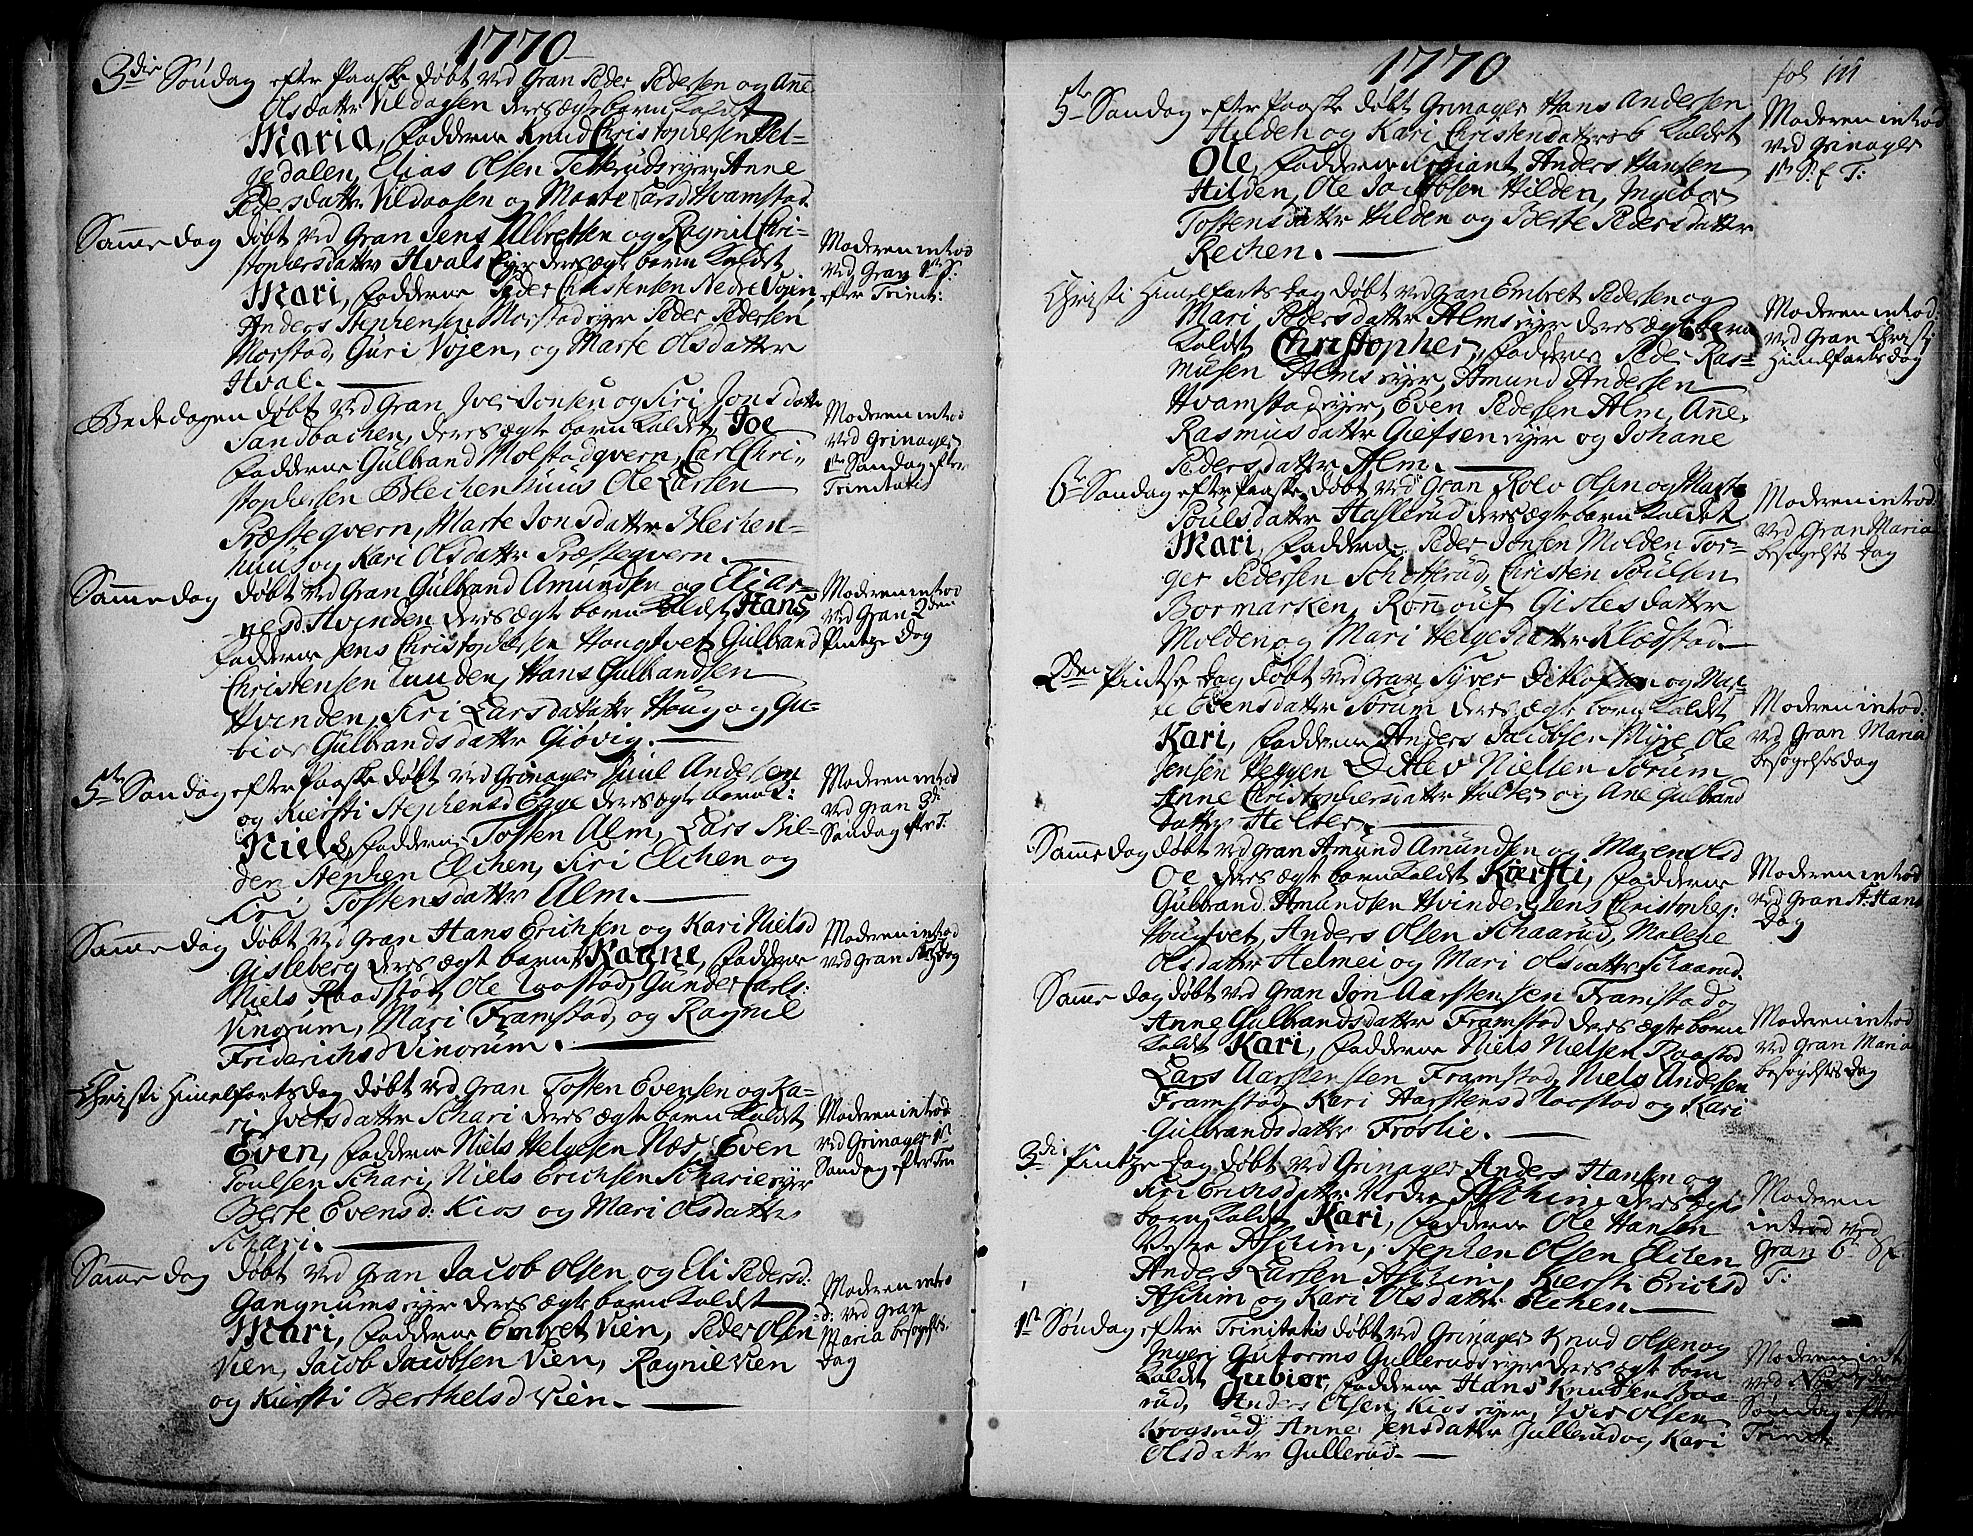 1770
3die Søndag efter Paaske døbt ved Gran Peder Pedersen og Ane
Olsdatter Vildaasen deres ægte barn kaldet
Maria, Fadderne Knud Christophersen Hel-
gedalen, Elias Olsen Tetterudseyer, Anne
Pedersdatter Vildaasen og Marte Larsd Hvamstad.
Samme dag døbt ved Gran Jens Albretsen og Ragnil Chri-
stophersdatter Hvals Eyer deres ægte barn kaldet
Mari, Fadderne Peder Christensen Nedre Vøjen
Anders Stephensen Morstadeyer Peder Pedersen
Morstad, Guri Vøjen, og Marte Olsdatter
Hval.
Moderen introd
ved Gran 1ste S:
efter Trinit:
Bededagen døbt ved Gran Iver Jonsen og Siri Jonsdatter
Sandbachen, deres ægte barn kaldet Joe
Fadderne Gulbrand Molstadqvern, Carl Chri-
stophersen Blechenhuus Ole Larsen
Præsteqvern, Marte Jonsdatter Blechen-
huus og Kari Olsdatter Præsteqvern.
Moderen introd
ved Grinager
1ste Søndag efter
Trinitatis
Samme dag døbt ved Gran Gulbrand Amundsen og Eli Ar-
nesd. Hvinden deres ægte barn kaldet Hans
Fadderne Jens Christophersen Hougtvet Gulbrand
Christensen Lunden, Hans Gulbrandsen
Hvinden, Siri Larsdatter Houg og Gu-
biør Gulbrandsdatter Giøvig.
Moderen introd
ved Gran 2den
Pintze dag
5te Søndag efter Paaske døbt ved Grinager Juul Andersen
og Kiersti Stephensd Egge deres ægte barn k:
Niels, Fadderne Tosten Alm, Lars Bil-
den Stephen Elchen, Siri Elchen og
Siri Tostensdatter Alm.
Moderen introd
ved Gran 3die
Søndag efter T:
Samme dag døbt ved Gran Hans Erichsen og Kari Nielsd
Gisleberg deres ægte barn Ragne, Fadderne
Niels Raadstød, Ole Raastad, Gunder Carls:
Vinorum, Mari Framstad, og Ragnil
Friderichsd Vinorum.
Moderen introd
ved Gran
Christi Himelfartsdag døbt ved Gran Tosten Evensen og Ka-
ri Iversdatter Schari deres ægte barn kaldet
Even, Fadderne Niels Helgesen Næs, Even
Poulsen Schari, Niels Erichsen Scharieeyer
Berte Evensd: Kios og Mari Olsdatter
Schari.
Moderen introd
ved Grinager 1ste
Søndag efter Tri
Samme dag døbt ved Gran Jacob Olsen og Eli Pedersd:
Gangnumseyer deres ægte barn kaldet
Mari, Fadderne Embret Vien, Peder Olsen
Vien, Jacob Jacobsen Vien, Ragnil Vien
og Kiersti Berthelsd Vien.
Moderen intro
d: ved Gran
Maria besøgelses
dag
1770
fol 111
5te Søndag efter Paaske døbt Grinager Hans Andersen
Hilden og Kari Christensdatters b kaldet
Ole, Fadderne Anders Hansen
Hilden, Ole Jacobsen Hilden, Ingebor
Tostensdatter Hilden og Berte Pedersdatter
Rechen.
Moderen introd
ved Grinager
1ste S: e T:
Christi Himelfartsdag døbt ved Gran Embret Pedersen og
Mari Pedersdatter Almseyer deres ægte barn
kaldet Christopher, Fadderne Peder Ras-
musen Almseyer, Amund Andersen
Hvamstadeyer, Even Pedersen Alm, Ane
Rasmusdatter Giefseneyer og Johane
Pedersdatter Alm.
Moderen introd:
ved Gran Christi
Himelfartsdag
6te Søndag efter Paaske døbt ved Gran Rolv Olsen og Marte
Poulsdatter Haslerud deres ægte barn kaldet
Mari, Fadderne Peder Jonsen Molden Tor-
ger Pedersen Schotterud, Christen Poulsen
Bormarken, Rønnouf Gislesdatter
Molden og Mari Helgesdatter Klodstad.
Moderen introd:
ved Gran Maria
besøgelses dag
2den Pintse dag døbt ved Gran Syver Ditlofsen og Mar-
te Evensdatter Sørum deres ægte barn kaldet
Kari, Fadderne Anders Jacobsen Myre Ole
Jensen Heggen Ditlev Nielsen Sørum
Anne Christophersdatter Holter og Ane Gulbrand
datter Helter.
Moderen introd:
ved Gran Maria
besøgelsesdag
Samme dag døbt ved Gran Amund Amundsen og Maren Olsd
Oe deres ægte barn kaldet Kiersti, Fadderne
Gulbrand Amundsen Hvinden, Jens Christopher:
Hougtvet, Anders Olsen Schaarud, Malene
Olsdatter Helmei og Mari Olsdatter Schaarud.
Moderen introd
ved Gran St: Hans
dag
Samme dag døbt ved Gran Jon Aarstensen Framstad og
Anne Gulbrandsdatter Framstad deres ægte barn
kaldet Kari, Fadderne Niels Nielsen Raastad
Lars Aarstensen Framstad, Niels Andersen
Framstad, Kari Harstensd Raastad og Kari
Gulbrandsdatter Froslie.
Moderen introd
ved Gran Maria
besøgelses dag
3die Pintze dag døbt ved Grinager Anders Hansen og
Siri Erichsdatter Nedre Aschim, deres ægte
barn kaldet Kari, Fadderne Ole Hansen
Vestre Aschim, Stephen Olsen Elchen
Anders Larsen Aschim, Kiersti Erichsd
Aschim og Kari Olsdatter Elchen.
Moderen
introd ved
Gran 6te S e
T:
1ste Søndag efter Trinitatis døbt ved Grinager Knud Olsen og
Inger Gutorms Gulleruds eyer deres ægte barn
kaldet Gubiør, Fadderne Hans Knudsen Braa-
rud, Anders Olsen Kioseyer, Iver Olsen
Krogsrud, Anne Jensdatter Gullerud og Kari
Olsdatter Gullerud.
Moderen int
ved
Søndag efter
Trinit: